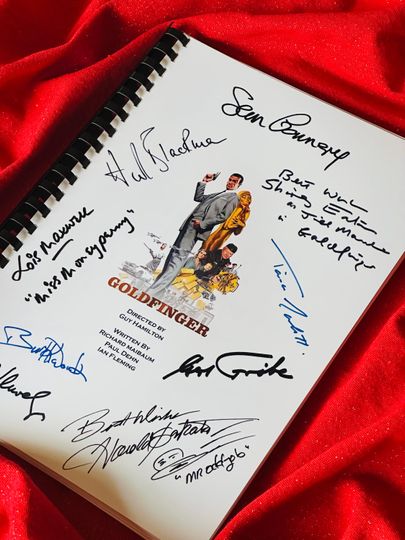 Sean Connery
Honor Blackman
Best Wishes
Shirley Eaton
as Jill Masterson
in Goldfinger
Lois Maxwell
"Miss Moneypenny"
Tania Mallett
GOLDFINGER
DIRECTED BY
GUY HAMILTON
WRITTEN BY
RICHARD MAIBAUM
PAUL DEHN
IAN FLEMING
Burt Kwouk
Gert Fröbe
Best Wishes
Harold Sakata
"MR oddjob"